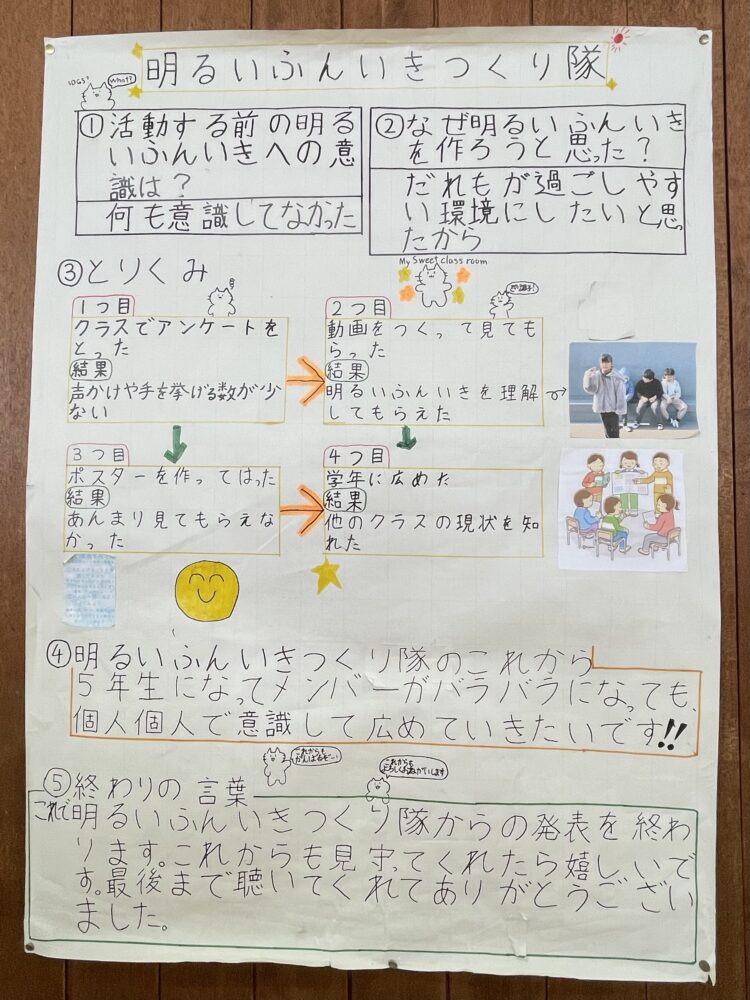 明るいふんいきつくり隊
SDGs?
What?
①活動する前の明る
いふんいきへの意
識は?
何も意識してなかった
②なぜ明るいふんいき
を作ろうと思った?
だれもが過ごしやす
い環境にしたいと思っ
たから
③とりくみ
My Sweet class room
1つ目
クラスでアンケートを
とった
結果
声かけや手を挙げる数が少
ない
2つ目
動画をつくって見ても
らった
結果
明るいふんいきを理解
してもらえた
3つ目
ポスターを作ってはった
結果
あんまり見てもらえな
かった
4つ目
学年に広めた
結果
他のクラスの現状を知
れた
④明るいふんいきつくり隊のこれから
5年生になってメンバーがバラバラになっても、
個人個人で意識して広めていきたいです!!
これからも
がんばるぞー!
これからも
よろしくおねがいします
⑤終わりの言葉
これで
明るいふんいきつくり隊からの発表を終わ
ります。これからも見守ってくれたら嬉しいで
す。最後まで聴いてくれてありがとうござい
ました。